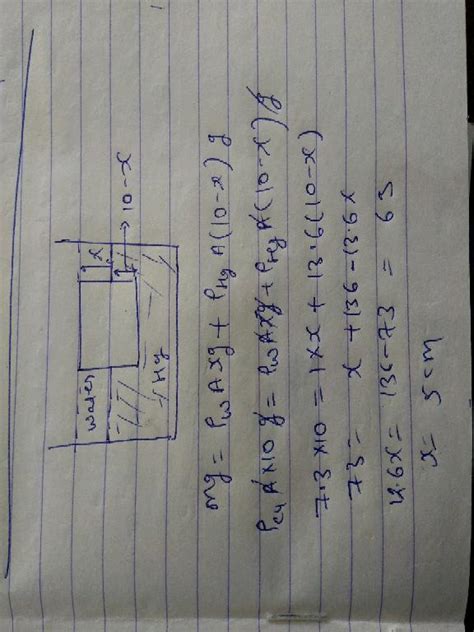 x
10-x
water
Hg
mg = ρw A x g + ρHg A (10-x) g
ρcy A × 10 g = ρw A x g + ρHg A (10-x) g
7.3 × 10 = 1 × x + 13.6 (10-x)
73 = x + 136 - 13.6x
12.6x = 136 - 73 = 63
x = 5 cm